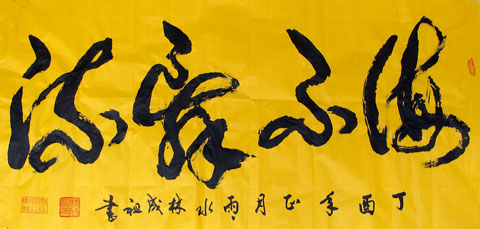 海不辞流
丁酉年正月雨水林成祖書